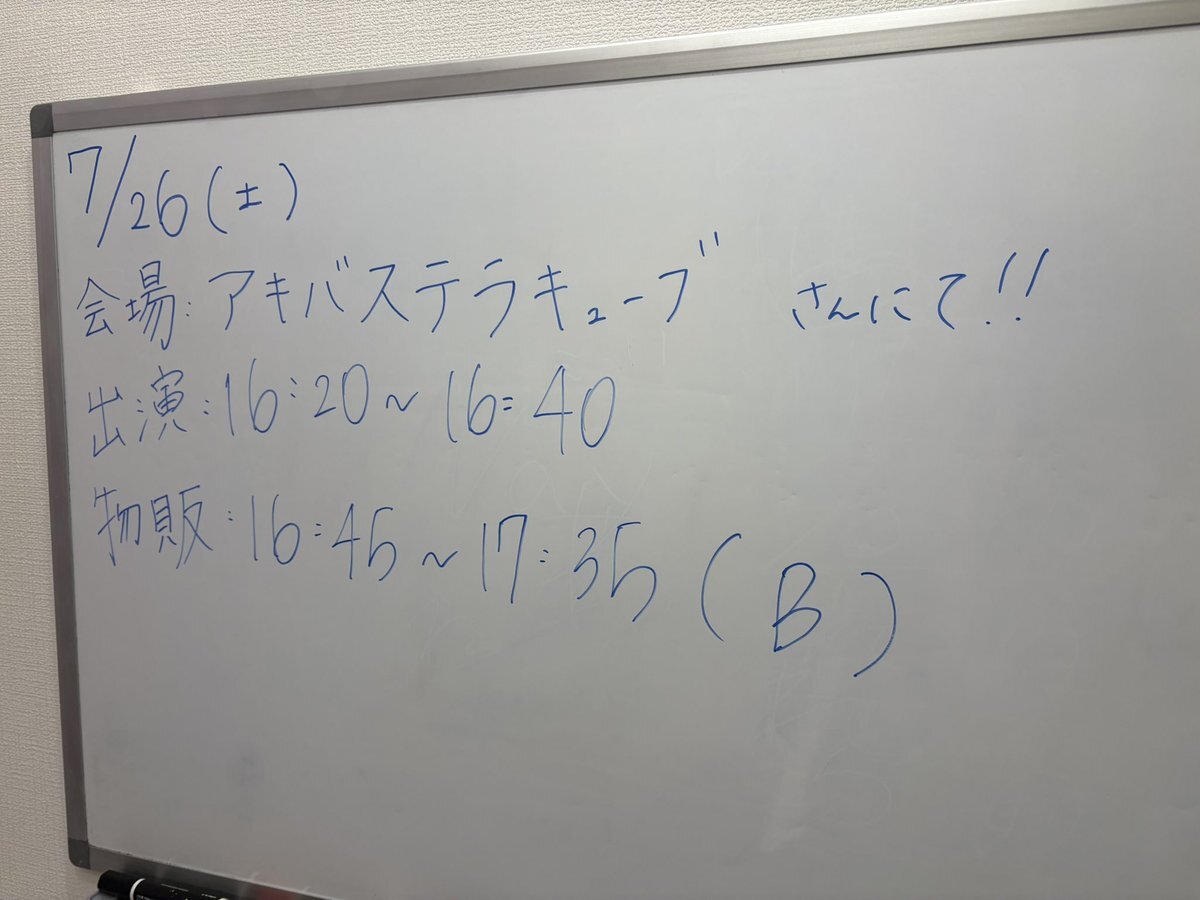 7/26(土)
会場:アキバステラキューブ さんにて!!
出演:16:20~16:40
物販:16:45~17:35(B)